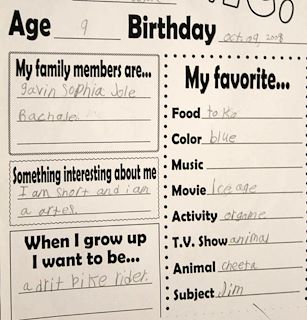 Age 9 Birthday oct 29, 2008
My family members are...
gavin Sophia Jole
Rachale.
Something interesting about me
I am short and i am
a artes.
When I grow up
I want to be...
a drit bike rider.
My favorite...
Food
Color blue
Music
Movie Ice age
Activity
T.V. Show animal
Animal cheeta
Subject Jim